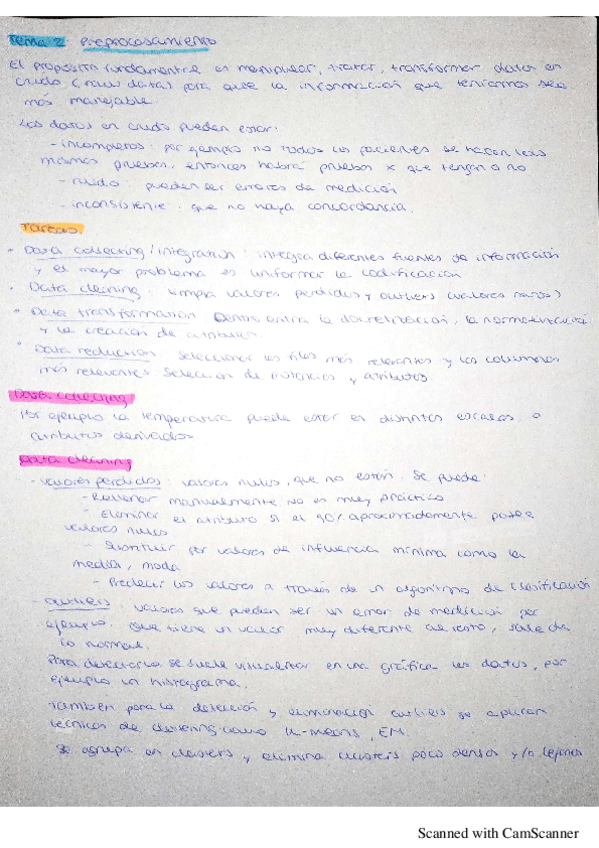 Tema 2 Preprocesamiento
El propósito fundamental es manipular, tratar, transformar datos en
crudo (raw data) para que la información que tenemos sea
más manejable.
Los datos en crudo pueden estar:
- incompletos: por ejemplo no todos los pacientes se hacen las
mismas pruebas, entonces habrá pruebas x que tengan o no
- ruido: pueden ser errores de medición
- inconsistente: que no haya concordancia.
Tareas
• Data collecting / integration: integra diferentes fuentes de información
y el mayor problema es uniformar la codificación
• Data cleaning: limpia valores perdidos y outliers (valores raros)
• Data transformation Dentro entra la discretización, la normalización
y la creación de atributos
• Data reduction Seleccionar las filas más relevantes y las columnas
más relevantes. Selección de instancias y atributos.
Data collecting
Por ejemplo la temperatura puede estar en distintas escalas, o
atributos derivados
Data cleaning
- valores perdidos: valores nulos, que no están. Se puede:
- Rellenar manualmente, no es muy práctico
- Eliminar el atributo si el 90% aproximadamente posee
valores nulos
- Sustituir por valores de influencia mínima como la
media, moda
- Predecir los valores a través de un algoritmo de clasificación
- outliers: valores que pueden ser un error de medición por
ejemplo. Que tiene un valor muy diferente al resto, sale de
lo normal.
Para detectarlo se suele visualizar en una gráfica los datos, por
ejemplo un histograma.
También para la detección y eliminación outliers se aplican
técnicas de clustering como K-means, EM.
Se agrupa en clusters y elimina clusters poco densos y/o lejanos
Scanned with CamScanner